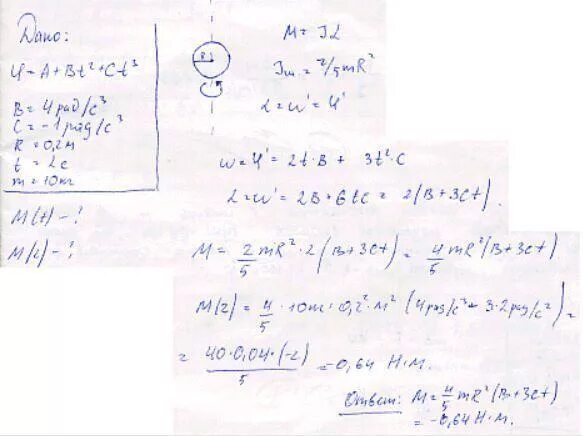 Дано:
φ = A + Bt² + Ct³
B = 4 рад/с³
C = -1 рад/с³
R = 0,2 м
t = 2 с
m = 10 кг
M(t) - ?
M(2) - ?
R
M = Jε
Jш = 2/5 mR²
ε = ω' = φ''
ω = φ' = 2t·B + 3t²·C
ε = ω' = 2B + 6tC = 2(B + 3Ct).
M = 2/5 mR²·2(B + 3Ct) = 4/5 mR²(B + 3Ct)
M(2) = 4/5 · 10кг · 0,2²·м² (4рад/с² - 3·2рад/с²) =
= 40·0,04·(-2)/5 = -0,64 Н·м.
Ответ: M = 4/5 mR²(B + 3Ct)
= -0,64 Н·м.